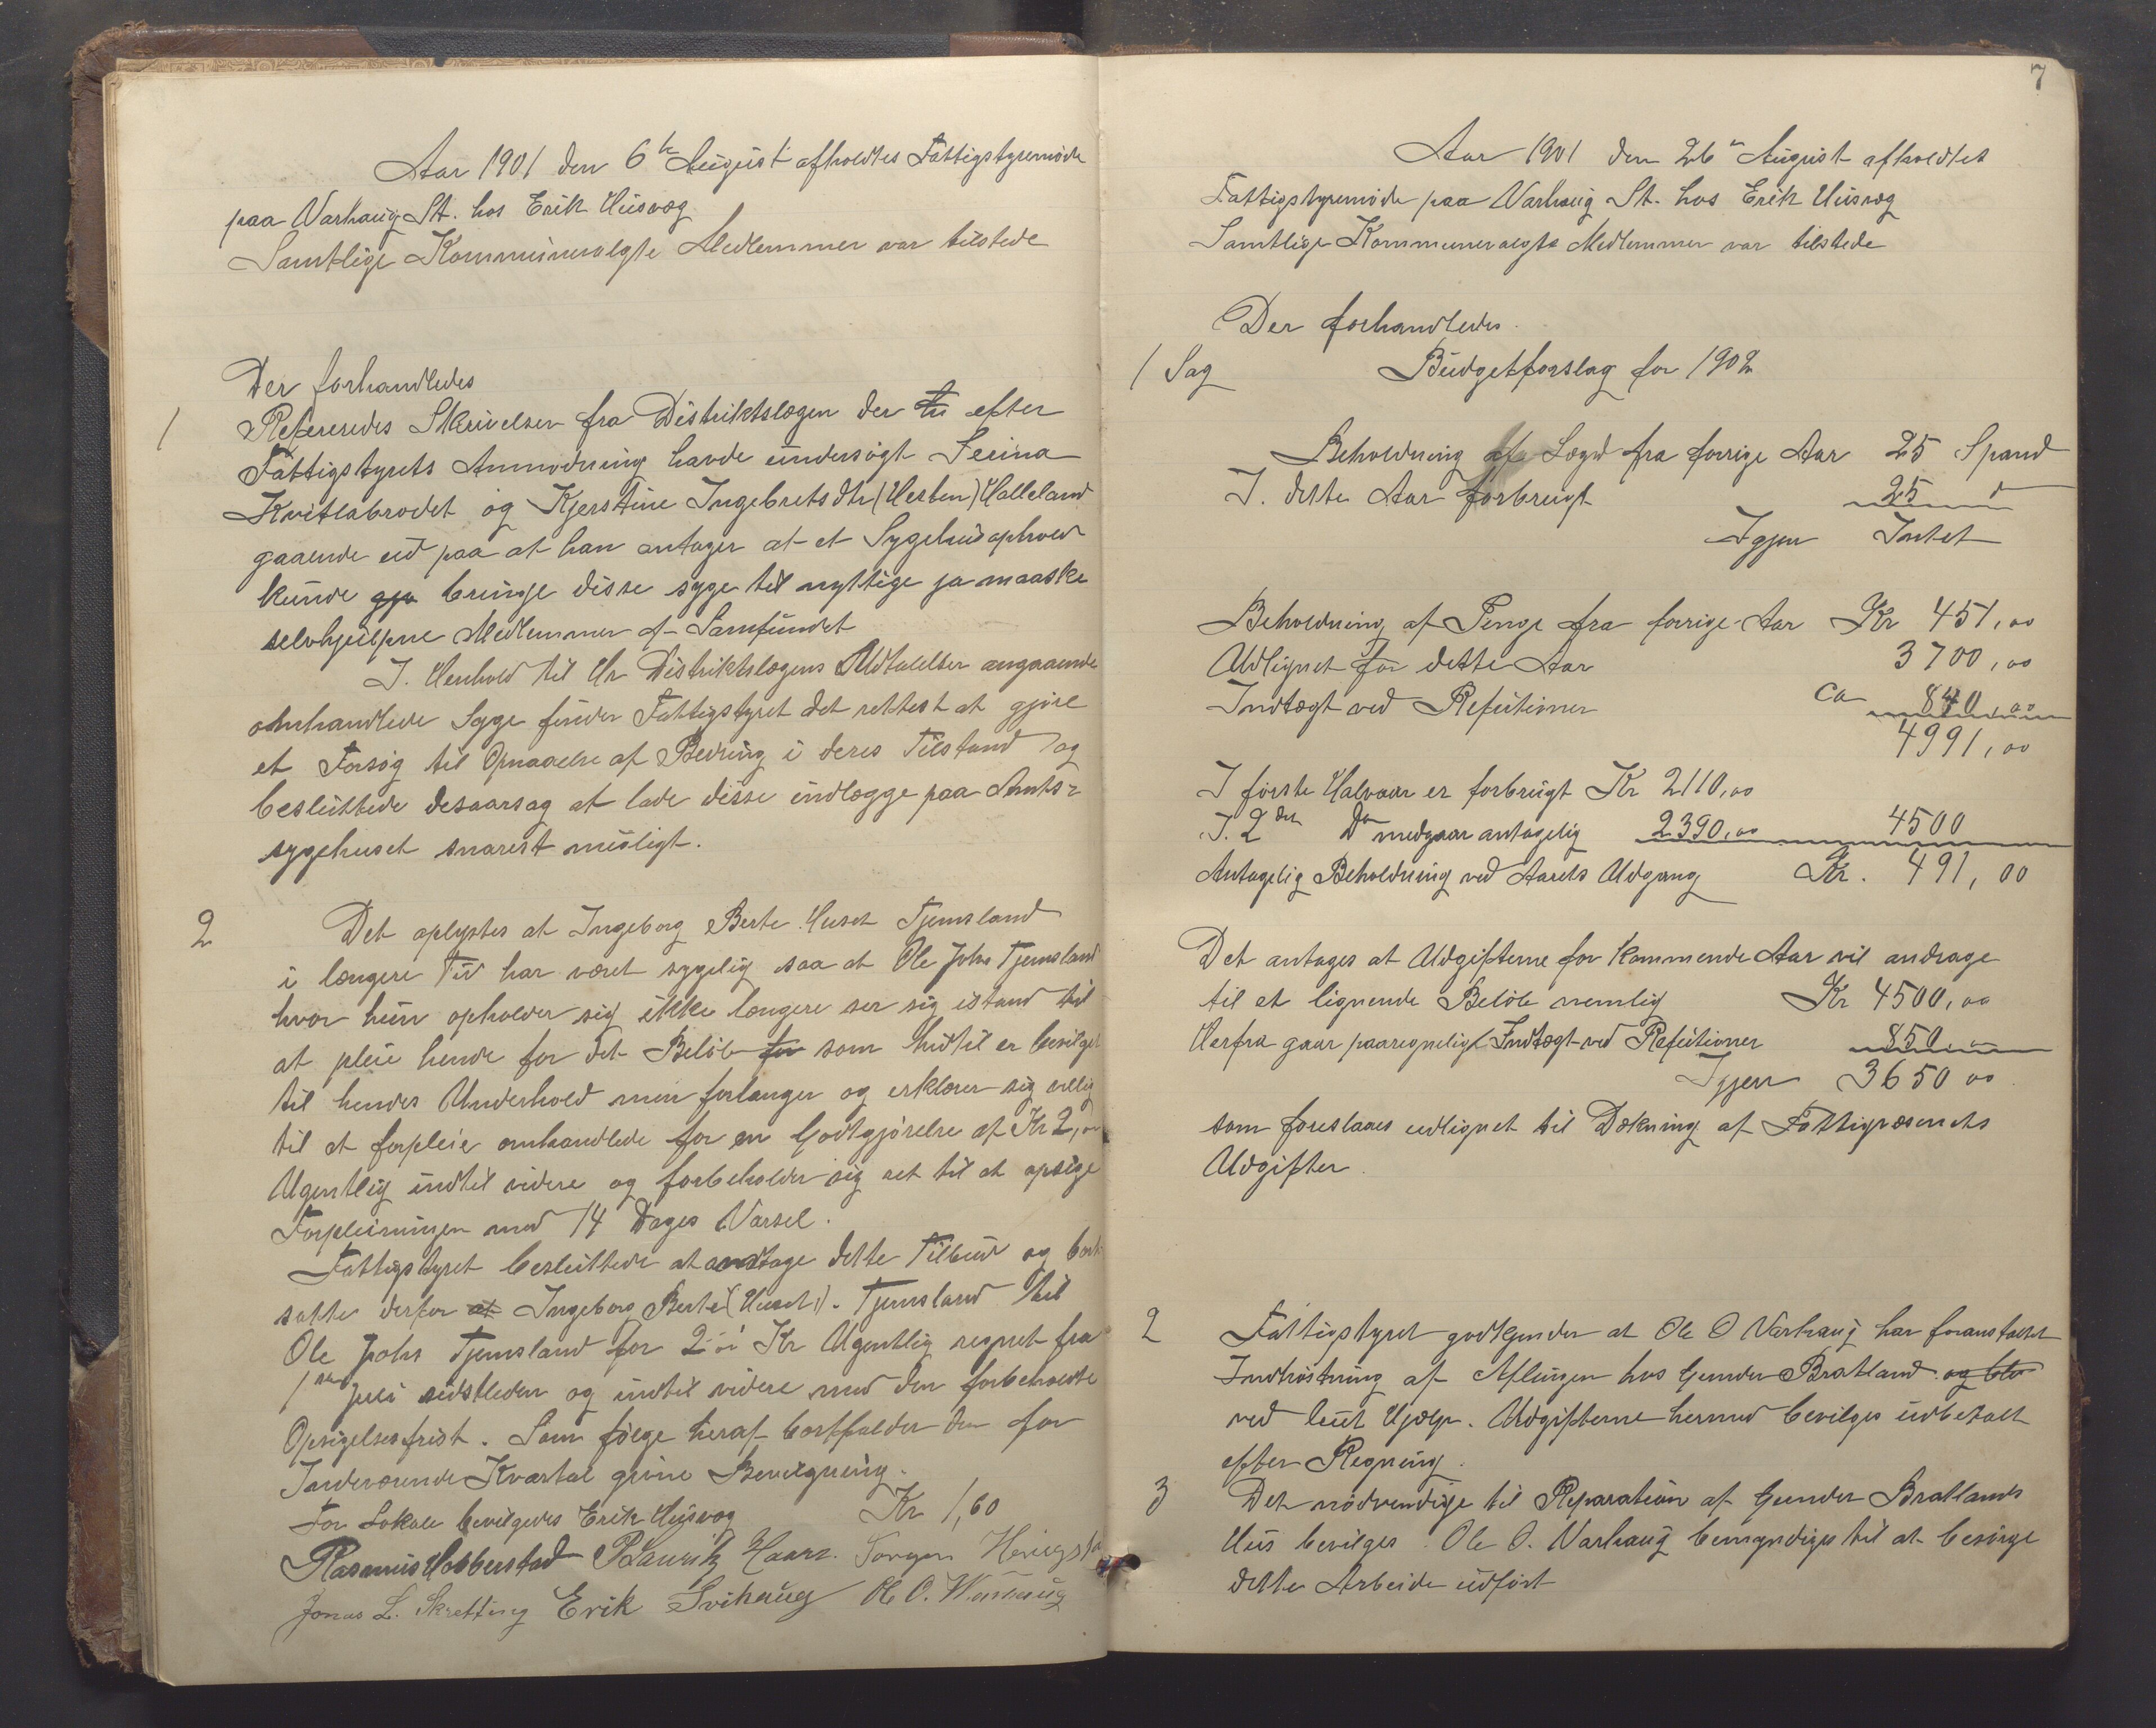 Aar 1901 den 6te August afholdtes Fattigstyremøde
paa Varhaug St. hos Erik Husvæg
Samtlige Kommunevalgte Medlemmer var tilstede
Der forhandledes
1 Refereredes Skrivelser fra Distriktslægen der efter
Fattigstyrets Anmodning havde undersøgt Serina
Kvitlabrodet og Kjerstine Ingebretsdtr (Hesten) Halleland
gaaende ud paa at han antager at et Sygehusophold
kunde bringe disse syge til nyttige ja maaske
selvhjulpne Medlemmer af Samfundet
I. Henhold til Hr Distriktslægens Udtalelser angaaende
omhandlede Syge finder Fattigstyret det rettest at gjøre
et Forsøg til Opnaaelse af Bedring i deres Tilstand og
besluttede desaarsag at lade disse indlægge paa Amts-
sygehuset snarest muligt.
2 Det oplystes at Ingeborg Berte Huset Tjemsland
i længere Tid har været sygelig saa at Ole Johs Tjemsland
hvor hun opholder sig ikke længere ser sig istand til
at pleie hende for det Beløb som hidtil er bevilget
til hendes Underhold men forlanger og erklærer sig villig
til at forpleie omhandlede for en Godtgjørelse af Kr 2,00
Ugentlig indtil videre og forbeholder sig ret til at opsige
Forpleiningen med 14 Dages Varsel.
Fattigstyret besluttede at modtage dette Tilbud og bort
satte derfor at Ingeborg Berte (Huset). Tjemsland til
Ole Johs Tjemsland for 2.00 Kr Ugentlig regnet fra
1ste Juli sidstleden og indtil videre med den forbeholdte
Opsigelsesfrist. Som følge heraf bortfalder den for
Indeværende Kvartal givne Bevilgning.
For Lokale bevilgedes Erik Husvæg Kr 1,60
Rasmus Hobberstad P Lauritz Haarr. Torger Herigsta
Jonas L. Skretting Erik Svihaug Ole O. Warhaug
7
Aar 1901 den 26de August afholdtes
Fattigstyremøde paa Varhaug St. hos Erik Husvæg
Samtlige Kommunevalgte Medlemmer var tilstede
Der forhandledes.
1 Sag Budgetforslag for 1902
Beholdning af Lægd fra forrige Aar 25 Spand
I. dette Aar forbrugt 25 d
Igjen Intet
Beholdning af Penge fra forrige Aar Kr 451,00
Udlignet for dette Aar 3700,00
Indtægt ved Refutioner ca 840,00
4991,00
I første Halvaar er forbrugt Kr 2110,00
I. 2det Do medgaar antagelig 2390,00 4500
Antagelig Beholdning ved Aarets Udgang Kr. 491,00
Det antages at Udgifterne for kommende Aar vil andrage
til et lignende Beløb nemlig Kr 4500,00
Herfra gaar paaregnelig Indtægt ved Refutioner 850,00
Igjen 3650 00
som foreslaaes udlignet til Dækning af Fattigvæsenets
Udgifter.
2 Fattigstyret godkjender at Ole O Varhaug har foranstaltet
Indhøstning af Aflingen hos Gunder Bratland og blo
ved leiet Hjælp. Udgifterne hermed bevilges udbetalt
efter Regning.
3 Det nødvendige til Reparation af Gunder Bratlands
Hus bevilges. Ole O. Varhaug bemyndiges til at besørge
dette Arbeide udført